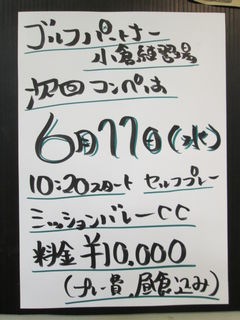 ゴルフパートナー
小倉練習場
次回コンペは
6月17日(水)
10:20スタート セルフプレー
ミッションバレーCC
料金¥10,000
(プレー費、昼食込み)